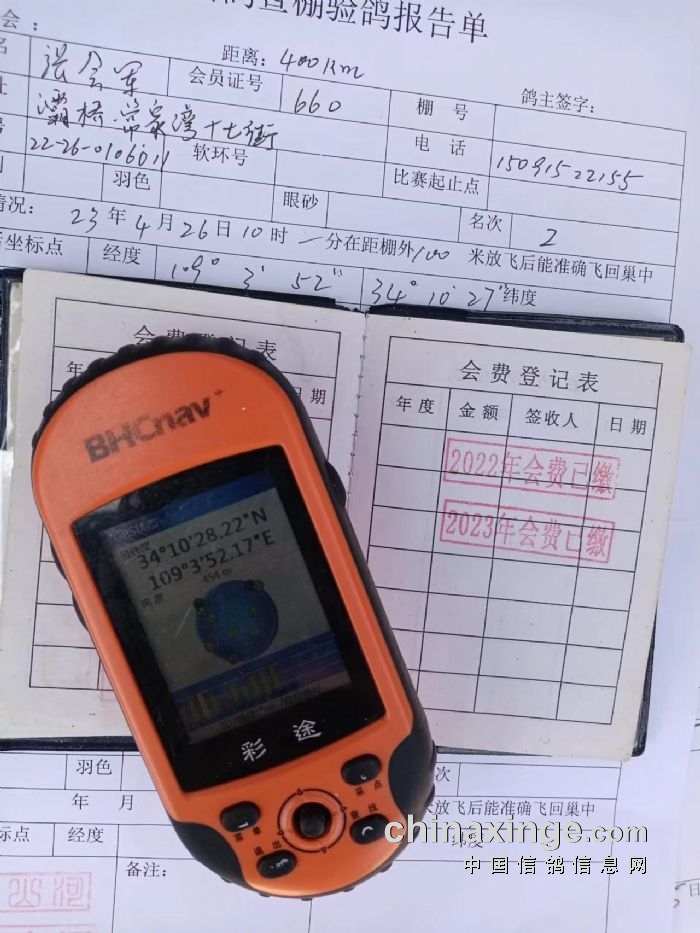 查棚验鸽报告单
会：
距离：400km
名 张会军 会员证号 660 棚 号 鸽主签字：
址 灞桥 街
电 话 15091522155
22-26-0106011 软环号
羽色 眼砂 比赛起止点
名次 2
情况： 23年4月26日10时 一分在距棚外100 米放飞后能准确飞回巢中
坐标点 经度 109° 3′ 52″ 34° 10′ 27″ 纬度
会费登记表
年 日期
会费登记表
年度 金额 签收人 日期
2022年会费已缴
2023年会费已缴
BHCnav
经纬度
34°10'28.22"N
109°3'52.17"E
高度 454 m
彩途
菜单
采点
退出
查找
羽色
年 月 米放飞后能准确飞回巢中
标点 经度 纬度
备注：
chinaxinge.com
中国信鸽信息网